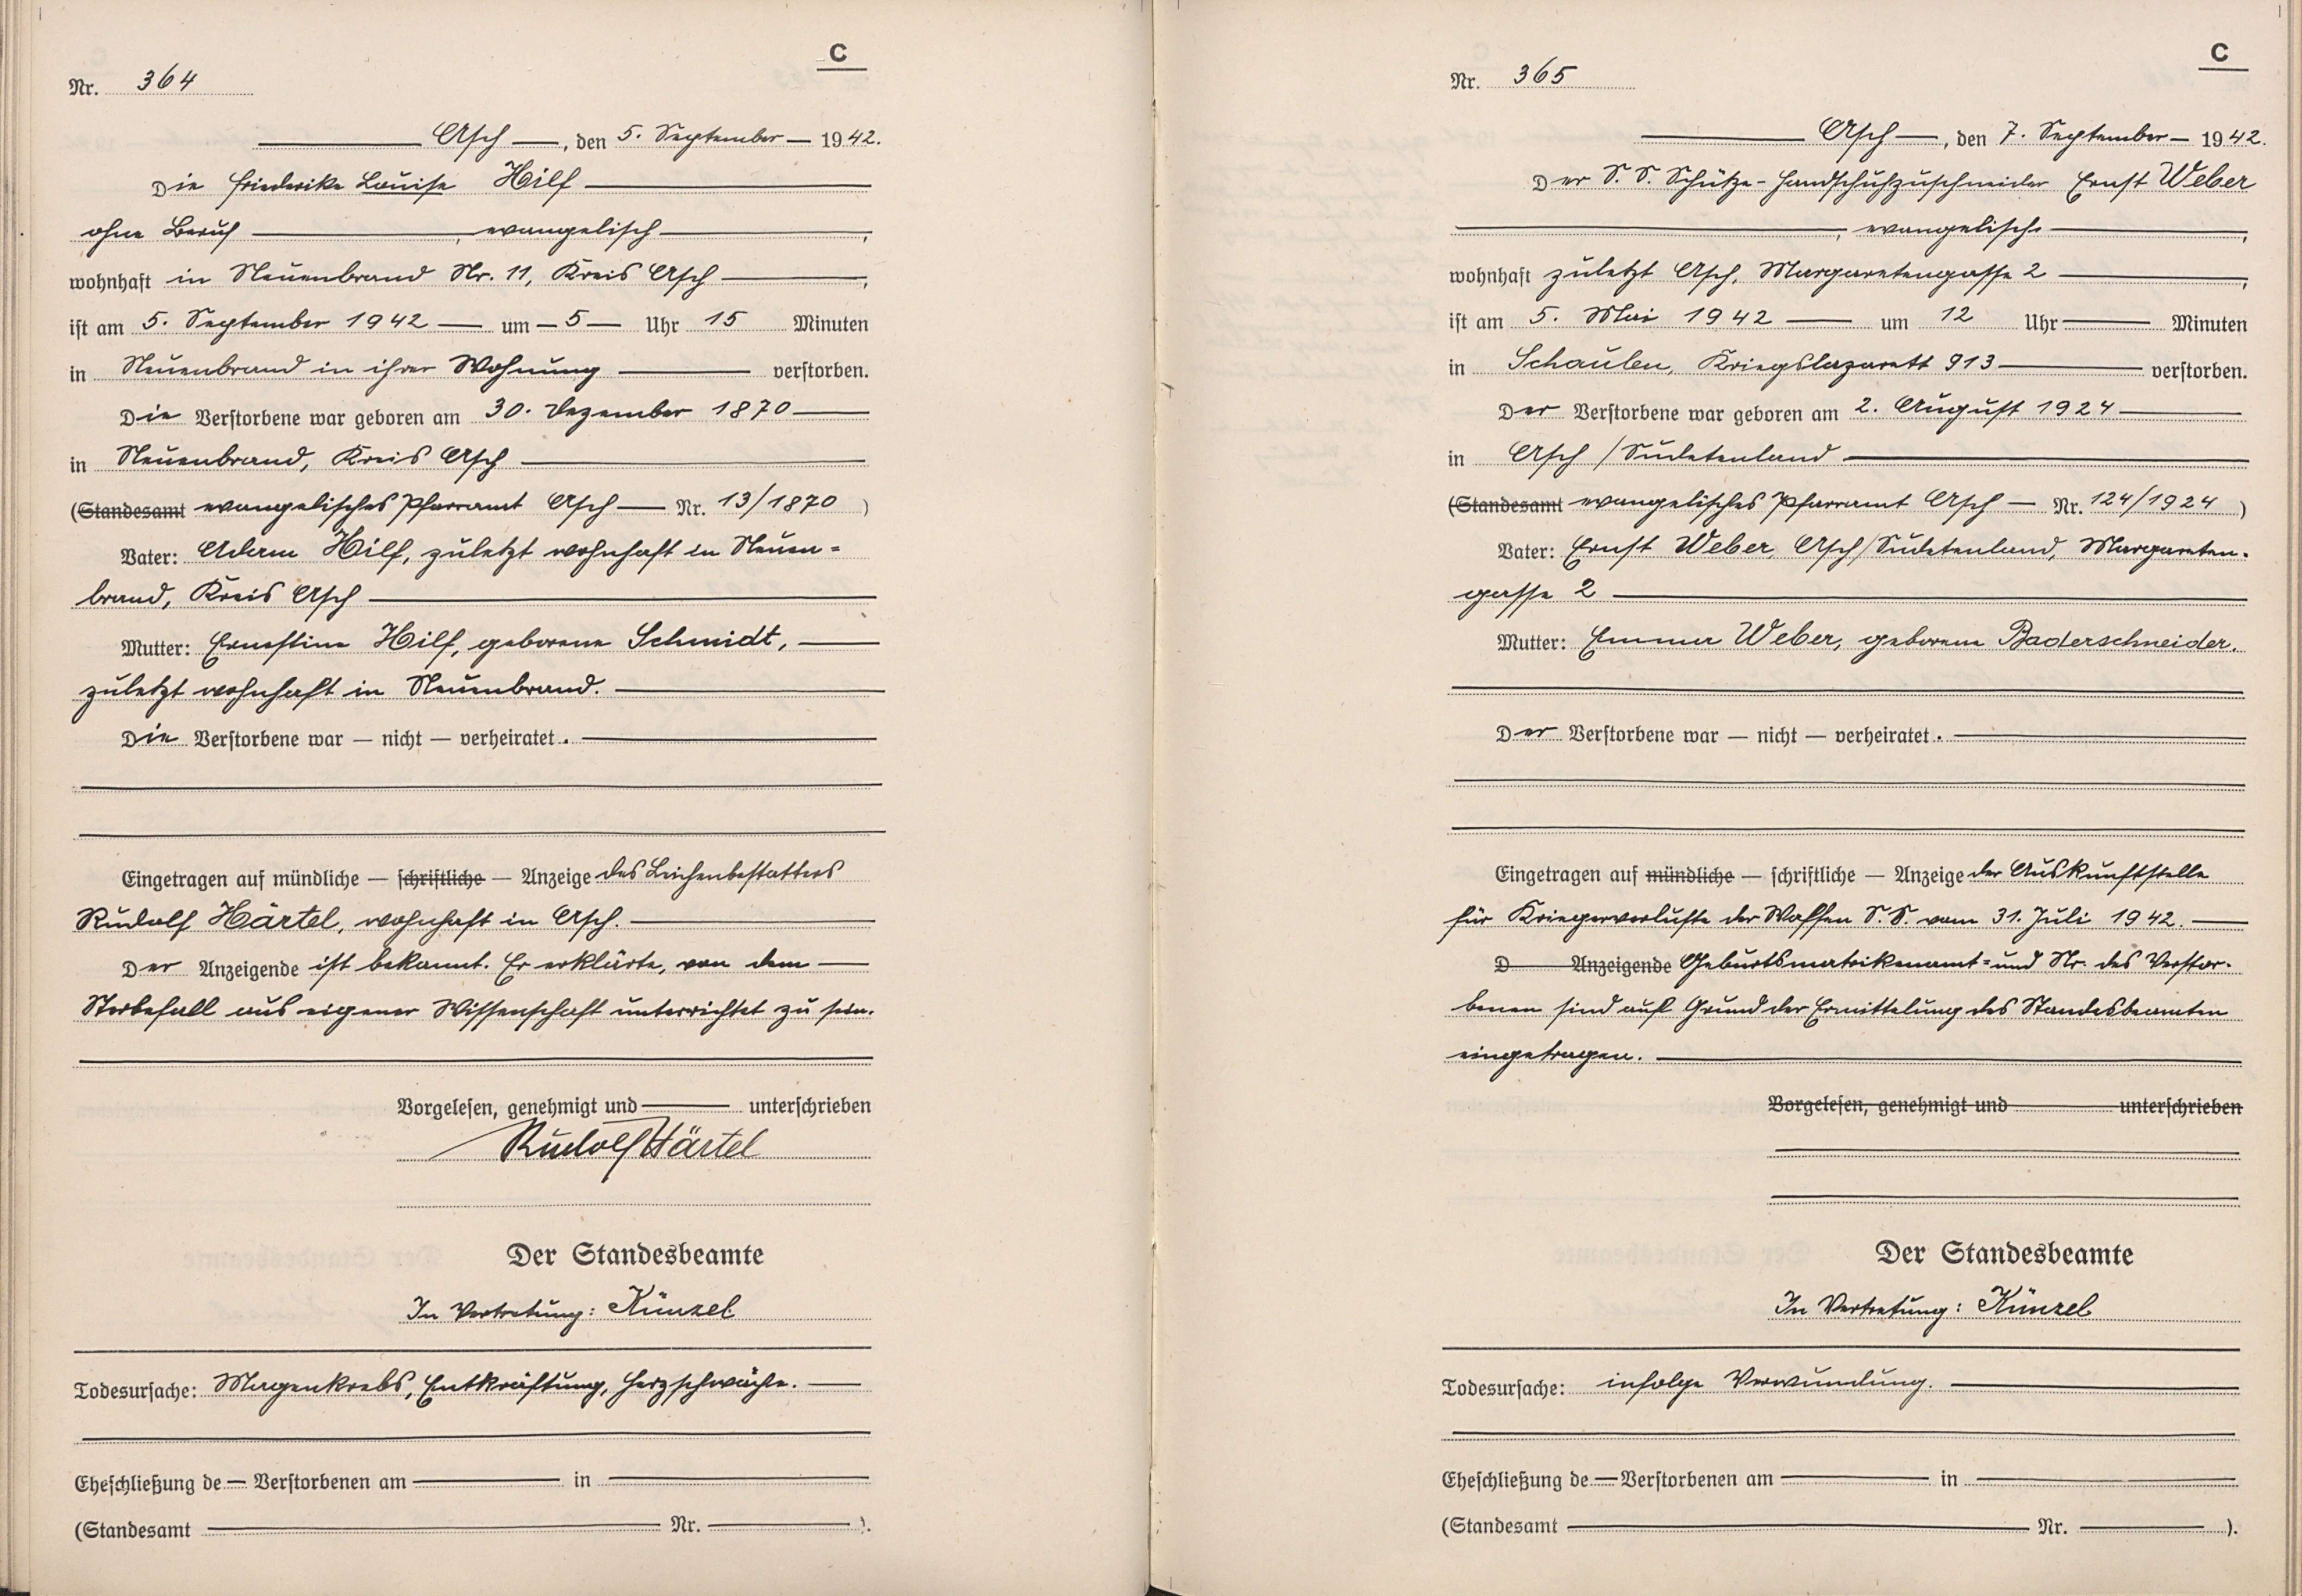 C
Nr. 364
Asch, den 5. September 1942.
Die Friederike Louise Hilf
ohne Beruf, evangelisch,
wohnhaft in Neuenbrand Nr. 11, Kreis Asch,
ist am 5. September 1942 um 5 Uhr 15 Minuten
in Neuenbrand in ihrer Wohnung verstorben.
Die Verstorbene war geboren am 30. Dezember 1870
in Neuenbrand, Kreis Asch
(Standesamt evangelisches Pfarramt Asch Nr. 13/1870)
Vater: Adam Hilf, zuletzt wohnhaft in Neuen=
brand, Kreis Asch
Mutter: Ernestine Hilf, geborene Schmidt,
zuletzt wohnhaft in Neuenbrand.
Die Verstorbene war — nicht — verheiratet.
Eingetragen auf mündliche — schriftliche — Anzeige des Leichenbestatters
Rudolf Härtel, wohnhaft in Asch.
Der Anzeigende ist bekannt. Er erklärte, von dem
Sterbefall aus eigener Wissenschaft unterrichtet zu sein.
Vorgelesen, genehmigt und unterschrieben
Rudolf Härtel
Der Standesbeamte
In Vertretung: Künzel
Todesursache: Magenkrebs, Entkräftung, Herzschwäche.
Eheschließung de Verstorbenen am in
(Standesamt Nr. ).
C
Nr. 365
Asch, den 7. September 1942.
Der S.S. Schütze-Handschuhzuschneider Ernst Weber
, evangelisch,
wohnhaft zuletzt Asch, Margaretengasse 2,
ist am 5. Mai 1942 um 12 Uhr Minuten
in Schaulen, Kriegslazarett 913 verstorben.
Der Verstorbene war geboren am 2. August 1924
in Asch/Sudetenland
(Standesamt evangelisches Pfarramt Asch Nr. 124/1924)
Vater: Ernst Weber, Asch/Sudetenland, Margareten-
gasse 2
Mutter: Emma Weber, geborene Baderschneider.
Der Verstorbene war — nicht — verheiratet.
Eingetragen auf mündliche — schriftliche — Anzeige der Auskunftstelle
für Kriegerverluste der Waffen S.S. vom 31. Juli 1942.
D Anzeigende Geburtsmatrikenamt= und Nr. des Verstor-
benen sind auf Grund der Ermittelung des Standesbeamten
eingetragen.
Vorgelesen, genehmigt und unterschrieben
Der Standesbeamte
In Vertretung: Künzel
Todesursache: infolge Verwundung.
Eheschließung de Verstorbenen am in
(Standesamt Nr. ).